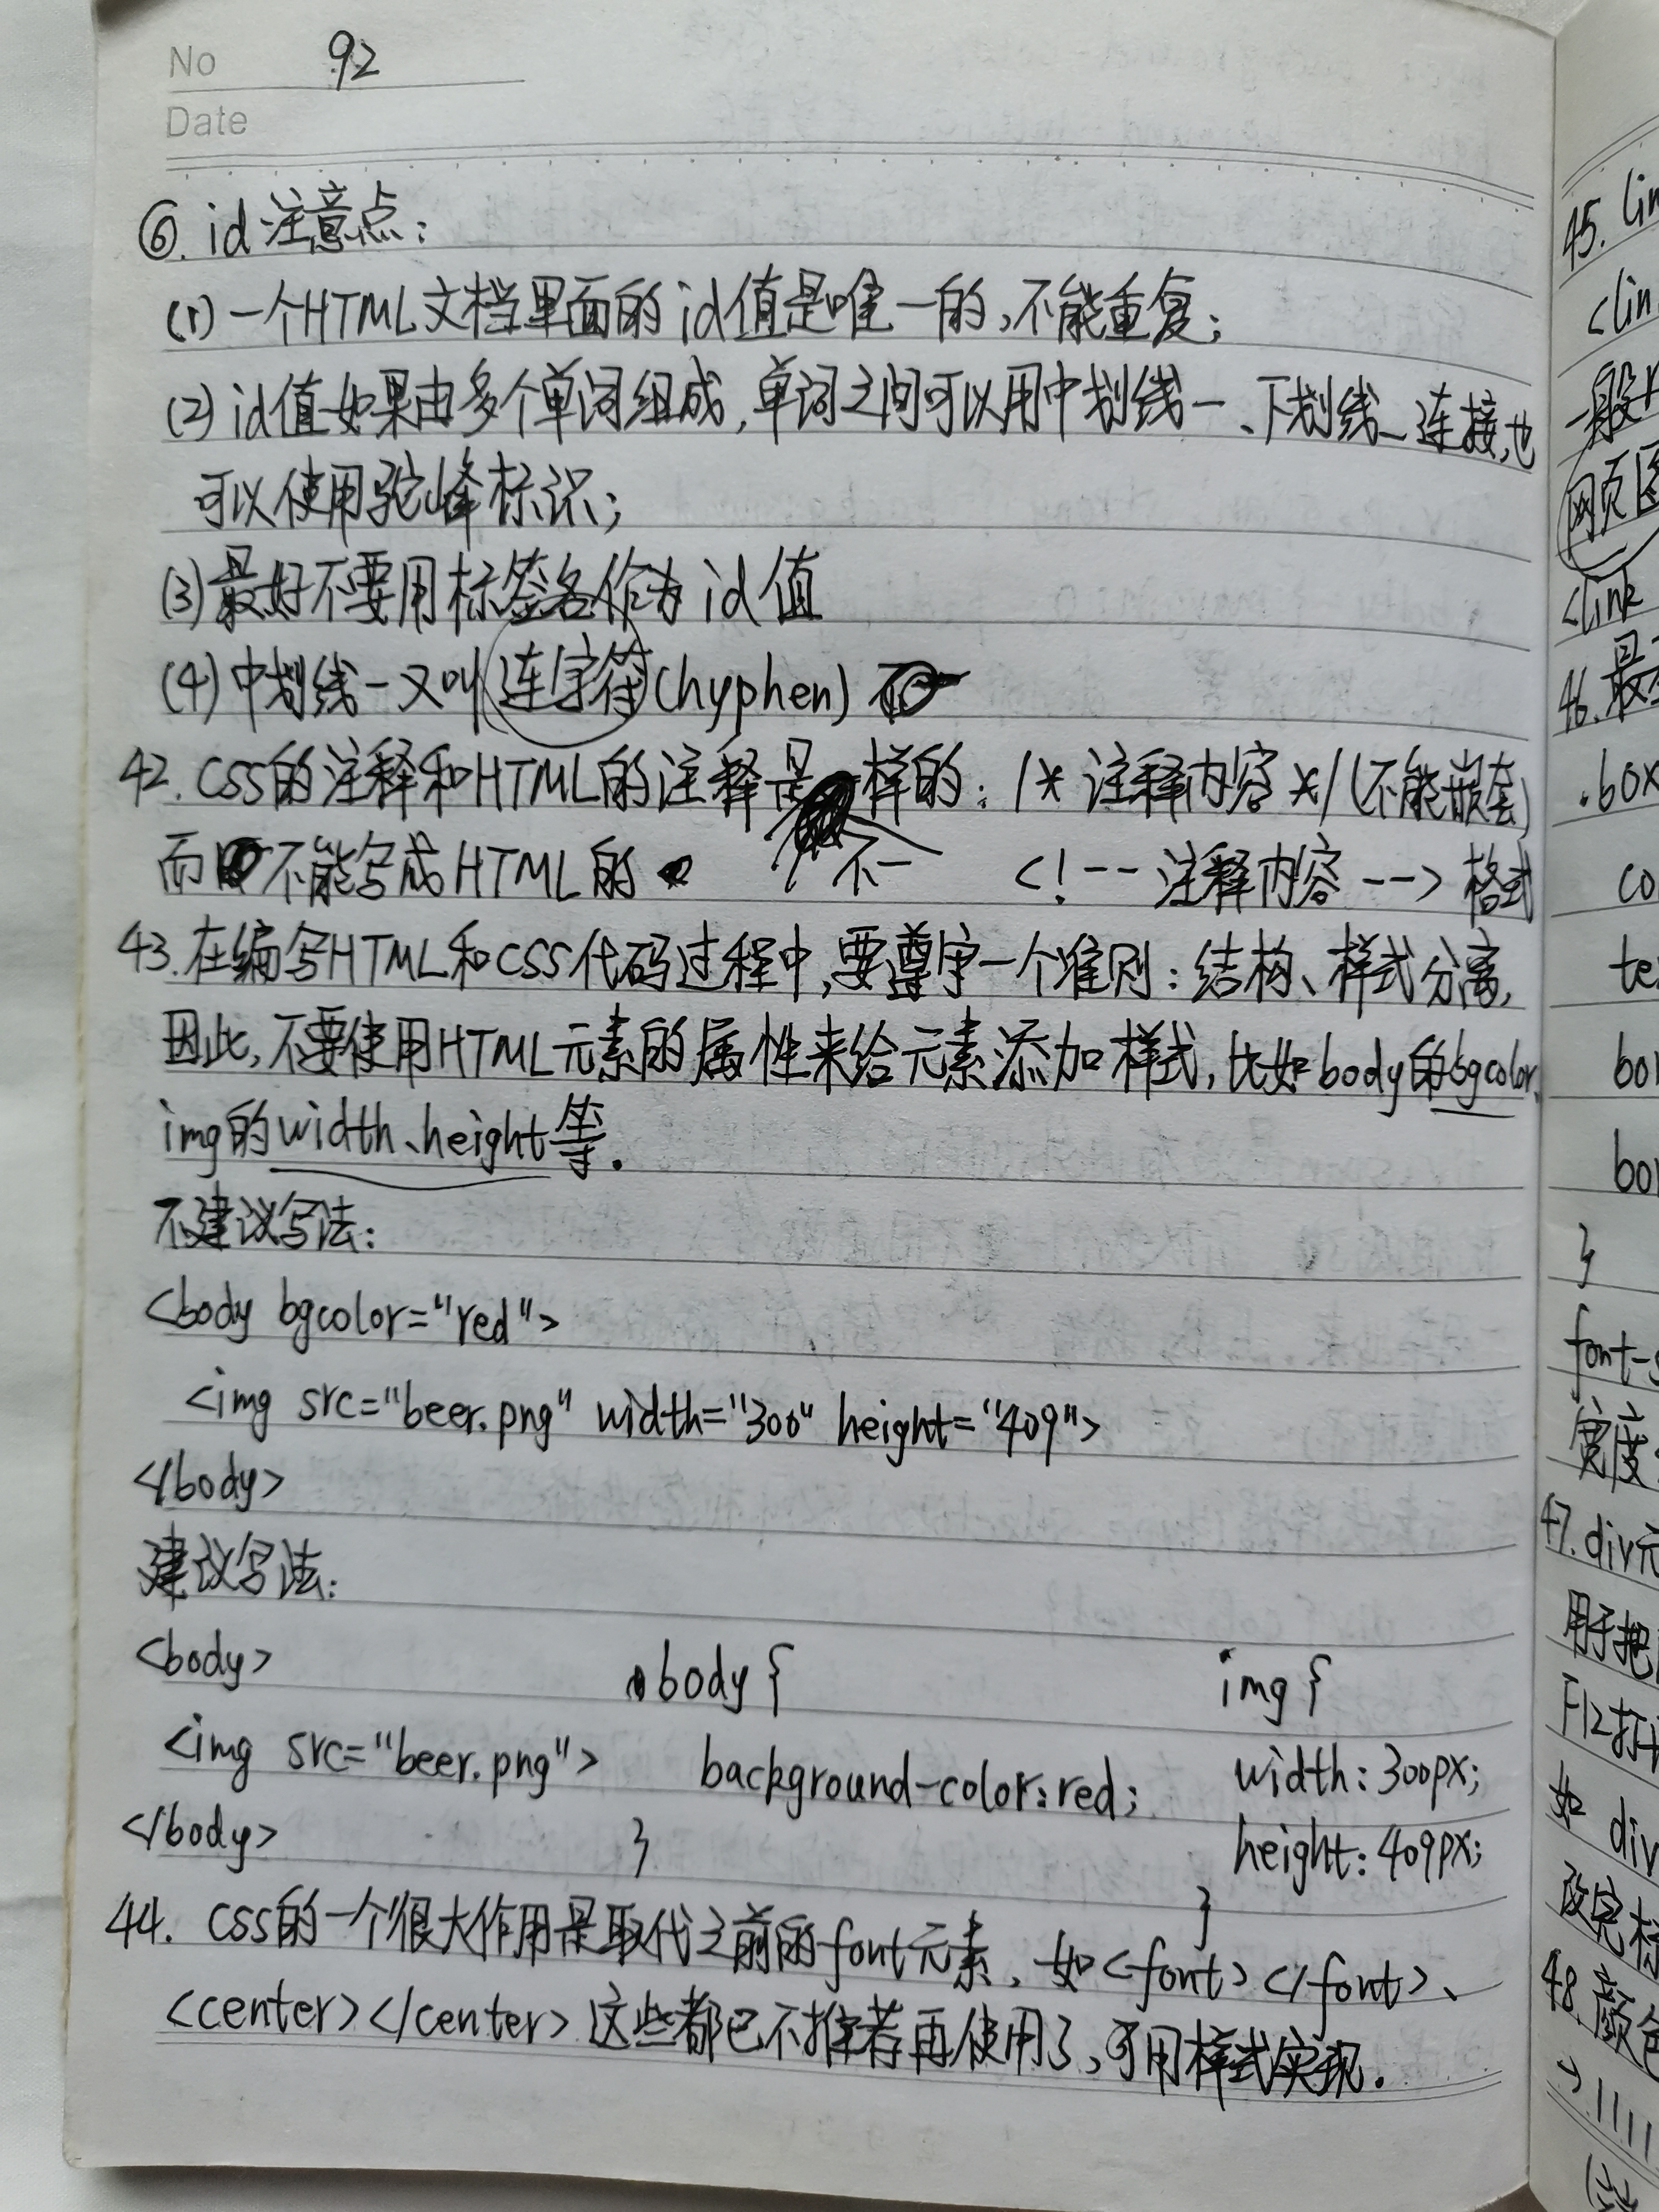 No 92
Date
⑥. id注意点：
(1) 一个HTML文档里面的id值是唯一的，不能重复；
(2) id值如果由多个单词组成，单词之间可以用中划线-、下划线_连接，也
可以使用驼峰标识；
(3) 最好不要用标签名作为id值
(4) 中划线-又叫连字符(hyphen)
42. CSS的注释和HTML的注释是不一样的：/* 注释内容 */(不能嵌套)
而不能写成HTML的 <!-- 注释内容 --> 格式
43. 在编写HTML和CSS代码过程中，要遵守一个准则：结构、样式分离，
因此，不要使用HTML元素的属性来给元素添加样式，比如body的bgcolor、
img的width、height等.
不建议写法：
<body bgcolor="red">
<img src="beer.png" width="300" height="409">
</body>
建议写法：
<body> body { img {
<img src="beer.png"> background-color:red; width:300px;
</body> } height:409px;
}
44. CSS的一个很大作用是取代之前的font元素，如<font></font>、
<center></center>这些都已不推荐再使用了，可用样式实现.
45. lin
<lin
一般
网页图
<link
46. 最
.box
co
te
bo
bo
}
font-s
宽度
47. div元
用于把
F12打
如 div
改完标
48. 颜色